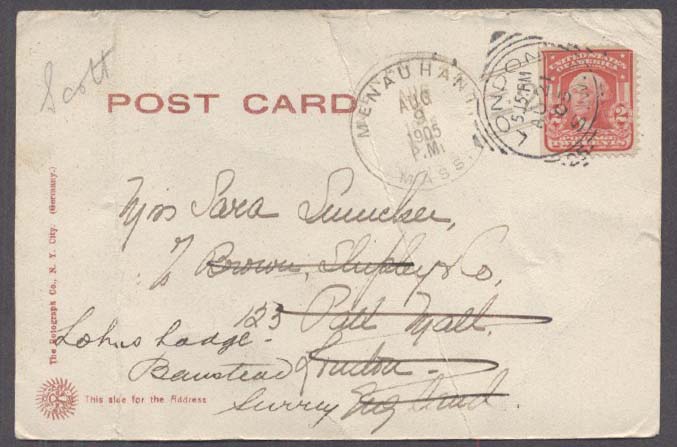 Scott
POST CARD
MENAUHANT
AUG
9
1905
P.M.
MASS.
LONDON
5.15 PM
UNITED STATES
OF AMERICA
2
TWO CENTS
Miss Sara
% Brown, Shipley & Co,
123 Pall Mall.
Lohus Lodge.
Banstead London.
Surrey England.
The Rotograph Co., N. Y. City. (Germany.)
This side for the Address